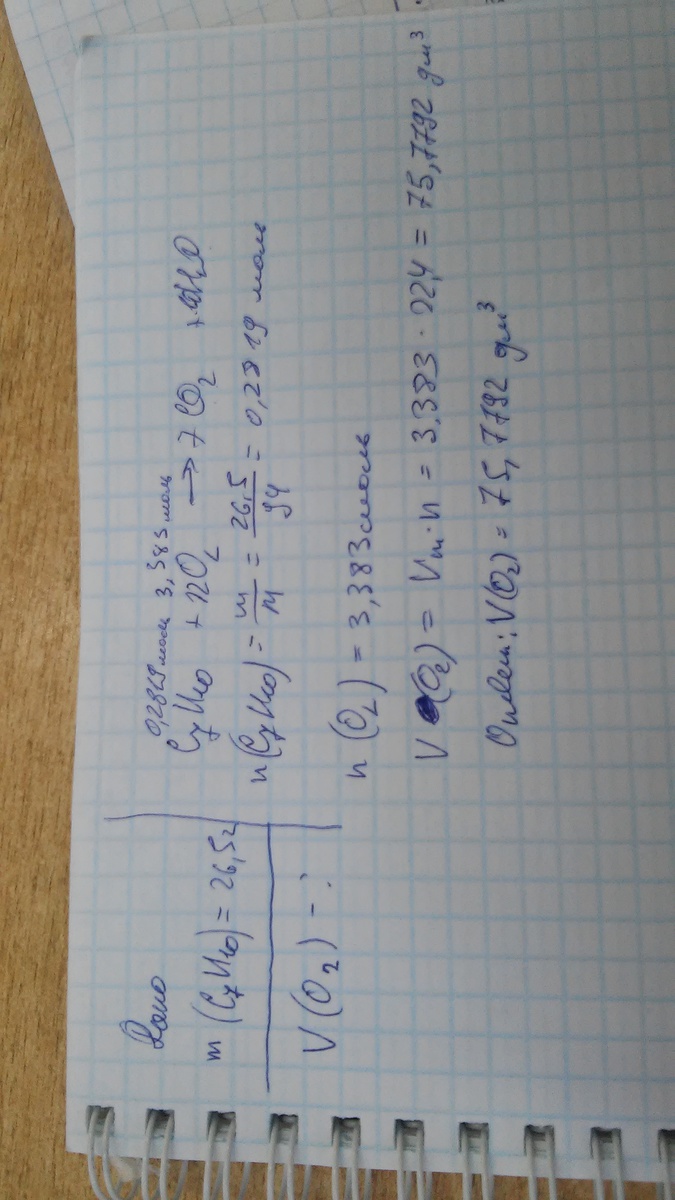 Дано
m (C₇H₁₀) = 26,5г
V (O₂) - ?
0,2819 моль 3,383 моль
C₇H₁₀ + 12O₂ → 7CO₂ + H₂O
n(C₇H₁₀) = m/M = 26,5/94 = 0,2819 моль
n (O₂) = 3,383 моль
V (O₂) = Vm · n = 3,383 · 22,4 = 75,7792 дм³
Ответ: V(O₂) = 75,7792 дм³